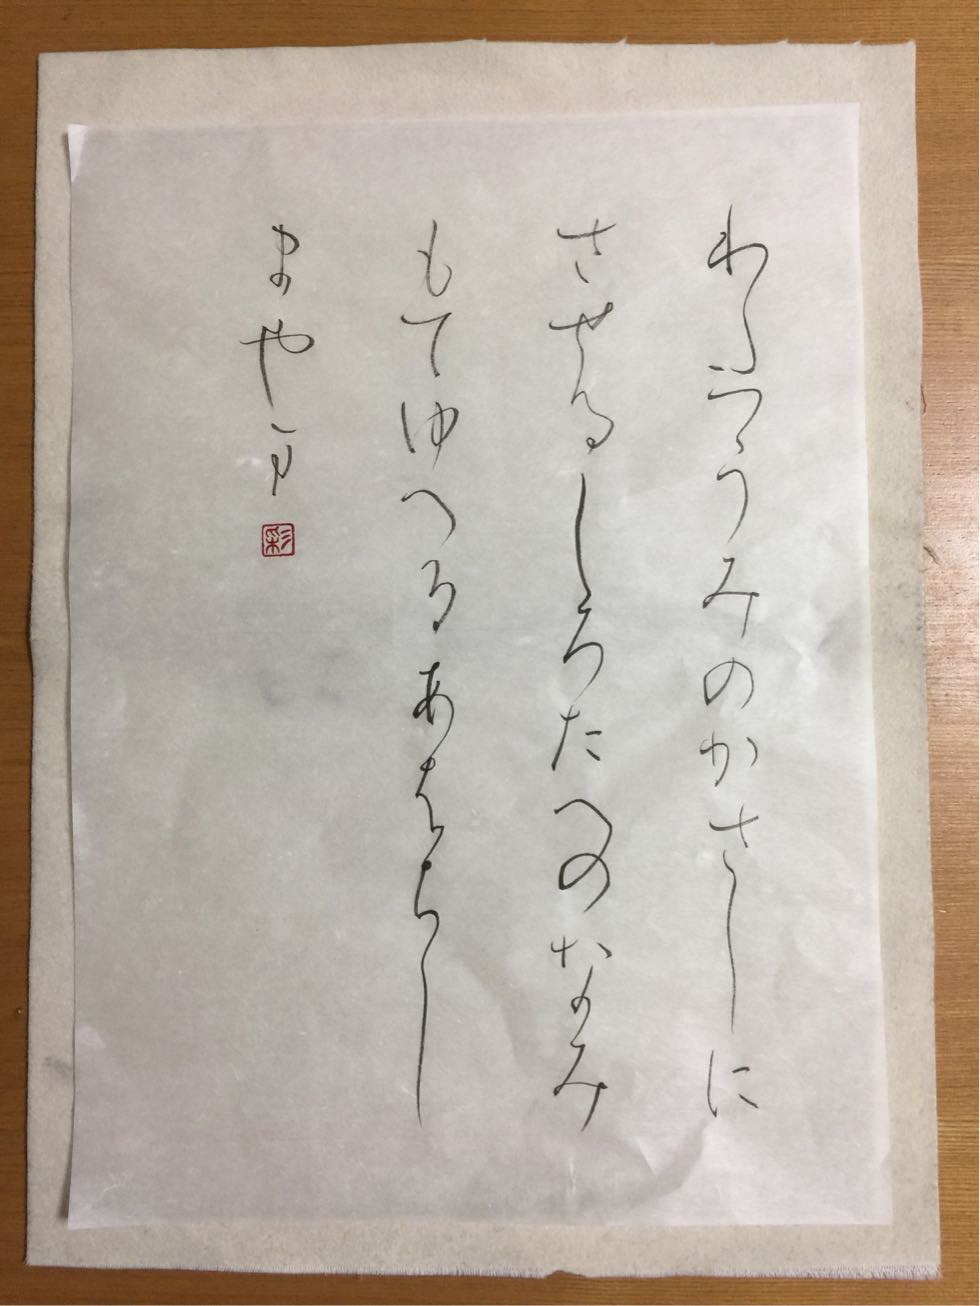 わたつうみのかさしに
させるしろたへのなみ
もてゆへるあはちし
まやま
彩